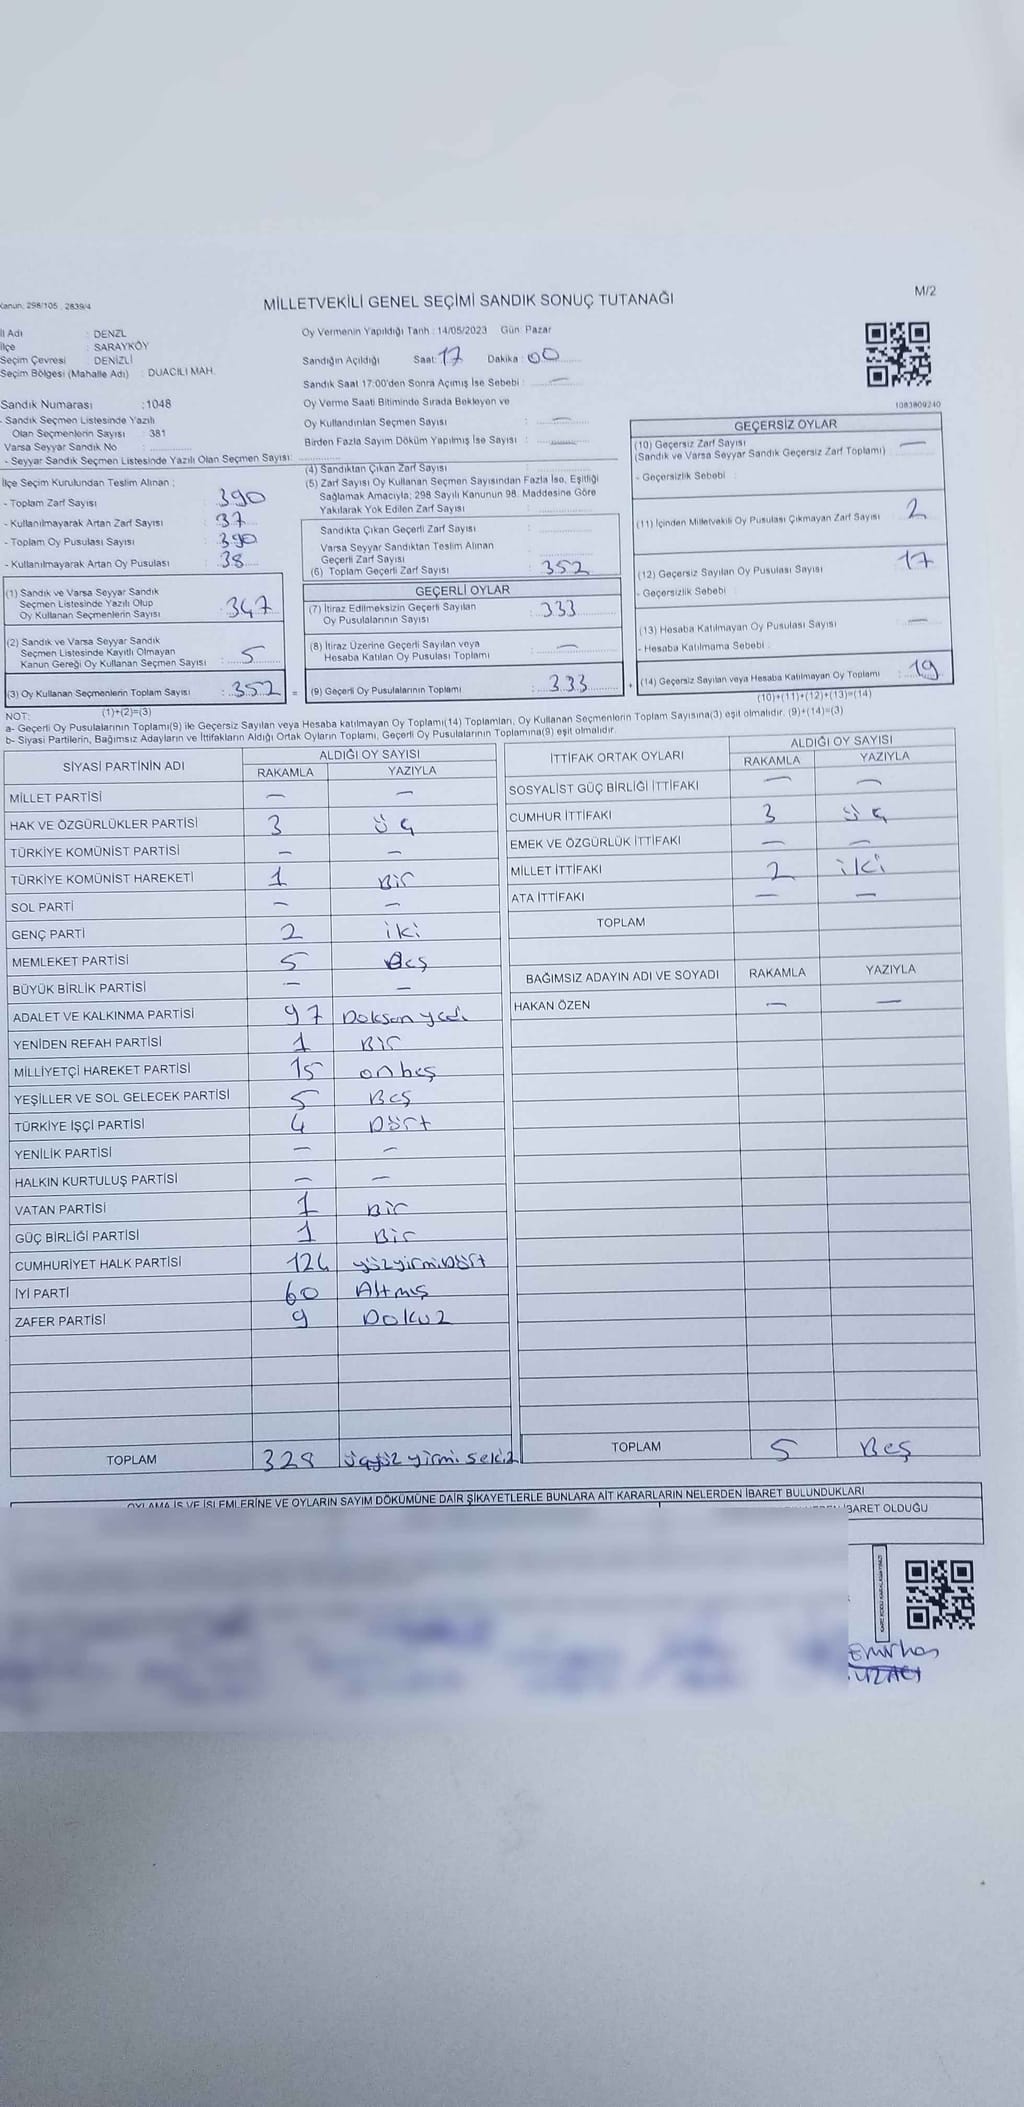 Kanun: 298/105 , 2839/4
MİLLETVEKİLİ GENEL SEÇİMİ SANDIK SONUÇ TUTANAĞI
M/2
İl Adı : DENZL
İlçe : SARAYKÖY
Seçim Çevresi : DENİZLİ
Seçim Bölgesi (Mahalle Adı) : DUACILI MAH.
Sandık Numarası :1048
- Sandık Seçmen Listesinde Yazılı
Olan Seçmenlerin Sayısı : 381
Varsa Seyyar Sandık No :
- Seyyar Sandık Seçmen Listesinde Yazılı Olan Seçmen Sayısı:
Oy Vermenin Yapıldığı Tarih :14/05/2023 Gün: Pazar
Sandığın Açıldığı Saat: 17 Dakika : 00
Sandık Saat 17:00'den Sonra Açımış İse Sebebi : —
Oy Verme Saati Bitiminde Sırada Bekleyen ve
Oy Kullandırılan Seçmen Sayısı : —
Birden Fazla Sayım Döküm Yapılmış İse Sayısı : —
1083809240
İlçe Seçim Kurulundan Teslim Alınan ;
- Toplam Zarf Sayısı : 390
- Kullanılmayarak Artan Zarf Sayısı : 37
- Toplam Oy Pusulası Sayısı : 390
- Kullanılmayarak Artan Oy Pusulası : 38
(1) Sandık ve Varsa Seyyar Sandık
Seçmen Listesinde Yazılı Olup
Oy Kullanan Seçmenlerin Sayısı : 347
(2) Sandık ve Varsa Seyyar Sandık
Seçmen Listesinde Kayıtlı Olmayan
Kanun Gereği Oy Kullanan Seçmen Sayısı : 5
(3) Oy Kullanan Seçmenlerin Toplam Sayısı : 352 =
(1)+(2)=(3)
(4) Sandıktan Çıkan Zarf Sayısı :
(5) Zarf Sayısı Oy Kullanan Seçmen Sayısından Fazla İse, Eşitliği
Sağlamak Amacıyla; 298 Sayılı Kanunun 98. Maddesine Göre
Yakılarak Yok Edilen Zarf Sayısı :
Sandıkta Çıkan Geçerli Zarf Sayısı :
Varsa Seyyar Sandıktan Teslim Alınan
Geçerli Zarf Sayısı :
(6) Toplam Geçerli Zarf Sayısı : 352
GEÇERLİ OYLAR
(7) İtiraz Edilmeksizin Geçerli Sayılan
Oy Pusulalarının Sayısı : 333
(8) İtiraz Üzerine Geçerli Sayılan veya
Hesaba Katılan Oy Pusulası Toplamı : —
(9) Geçerli Oy Pusulalarının Toplamı : 333 +
GEÇERSİZ OYLAR
(10) Geçersiz Zarf Sayısı : —
(Sandık ve Varsa Seyyar Sandık Geçersiz Zarf Toplamı)
- Geçersizlik Sebebi :
(11) İçinden Milletvekili Oy Pusulası Çıkmayan Zarf Sayısı : 2
(12) Geçersiz Sayılan Oy Pusulası Sayısı : 17
- Geçersizlik Sebebi :
(13) Hesaba Katılmayan Oy Pusulası Sayısı : —
- Hesaba Katılmama Sebebi :
(14) Geçersiz Sayılan veya Hesaba Katılmayan Oy Toplamı : 19
(10)+(11)+(12)+(13)=(14)
NOT:
a- Geçerli Oy Pusulalarının Toplamı(9) ile Geçersiz Sayılan veya Hesaba katılmayan Oy Toplamı(14) Toplamları, Oy Kullanan Seçmenlerin Toplam Sayısına(3) eşit olmalıdır. (9)+(14)=(3)
b- Siyasi Partilerin, Bağımsız Adayların ve İttifakların Aldığı Ortak Oyların Toplamı, Geçerli Oy Pusulalarının Toplamına(9) eşit olmalıdır.
SİYASİ PARTİNİN ADI ALDIĞI OY SAYISI
RAKAMLA YAZIYLA
MİLLET PARTİSİ — —
HAK VE ÖZGÜRLÜKLER PARTİSİ 3 üç
TÜRKİYE KOMÜNİST PARTİSİ — —
TÜRKİYE KOMÜNİST HAREKETİ 1 Bir
SOL PARTİ — —
GENÇ PARTİ 2 iki
MEMLEKET PARTİSİ 5 Beş
BÜYÜK BİRLİK PARTİSİ — —
ADALET VE KALKINMA PARTİSİ 97 Doksan yedi
YENİDEN REFAH PARTİSİ 1 Bir
MİLLİYETÇİ HAREKET PARTİSİ 15 onbeş
YEŞİLLER VE SOL GELECEK PARTİSİ 5 Beş
TÜRKİYE İŞÇİ PARTİSİ 4 Dört
YENİLİK PARTİSİ — —
HALKIN KURTULUŞ PARTİSİ — —
VATAN PARTİSİ 1 Bir
GÜÇ BİRLİĞİ PARTİSİ 1 Bir
CUMHURİYET HALK PARTİSİ 124 yüzyirmiDört
İYİ PARTİ 60 Altmış
ZAFER PARTİSİ 9 Dokuz
TOPLAM 328 üçyüz yirmi sekiz
İTTİFAK ORTAK OYLARI ALDIĞI OY SAYISI
RAKAMLA YAZIYLA
SOSYALİST GÜÇ BİRLİĞİ İTTİFAKI — —
CUMHUR İTTİFAKI 3 üç
EMEK VE ÖZGÜRLÜK İTTİFAKI — —
MİLLET İTTİFAKI 2 iki
ATA İTTİFAKI — —
TOPLAM
BAĞIMSIZ ADAYIN ADI VE SOYADI RAKAMLA YAZIYLA
HAKAN ÖZEN — —
TOPLAM 5 Beş
OYLAMA İŞ VE İŞLEMLERİNE VE OYLARIN SAYIM DÖKÜMÜNE DAİR ŞİKAYETLERLE BUNLARA AİT KARARLARIN NELERDEN İBARET BULUNDUKLARI
İBARET OLDUĞU
Emirhan